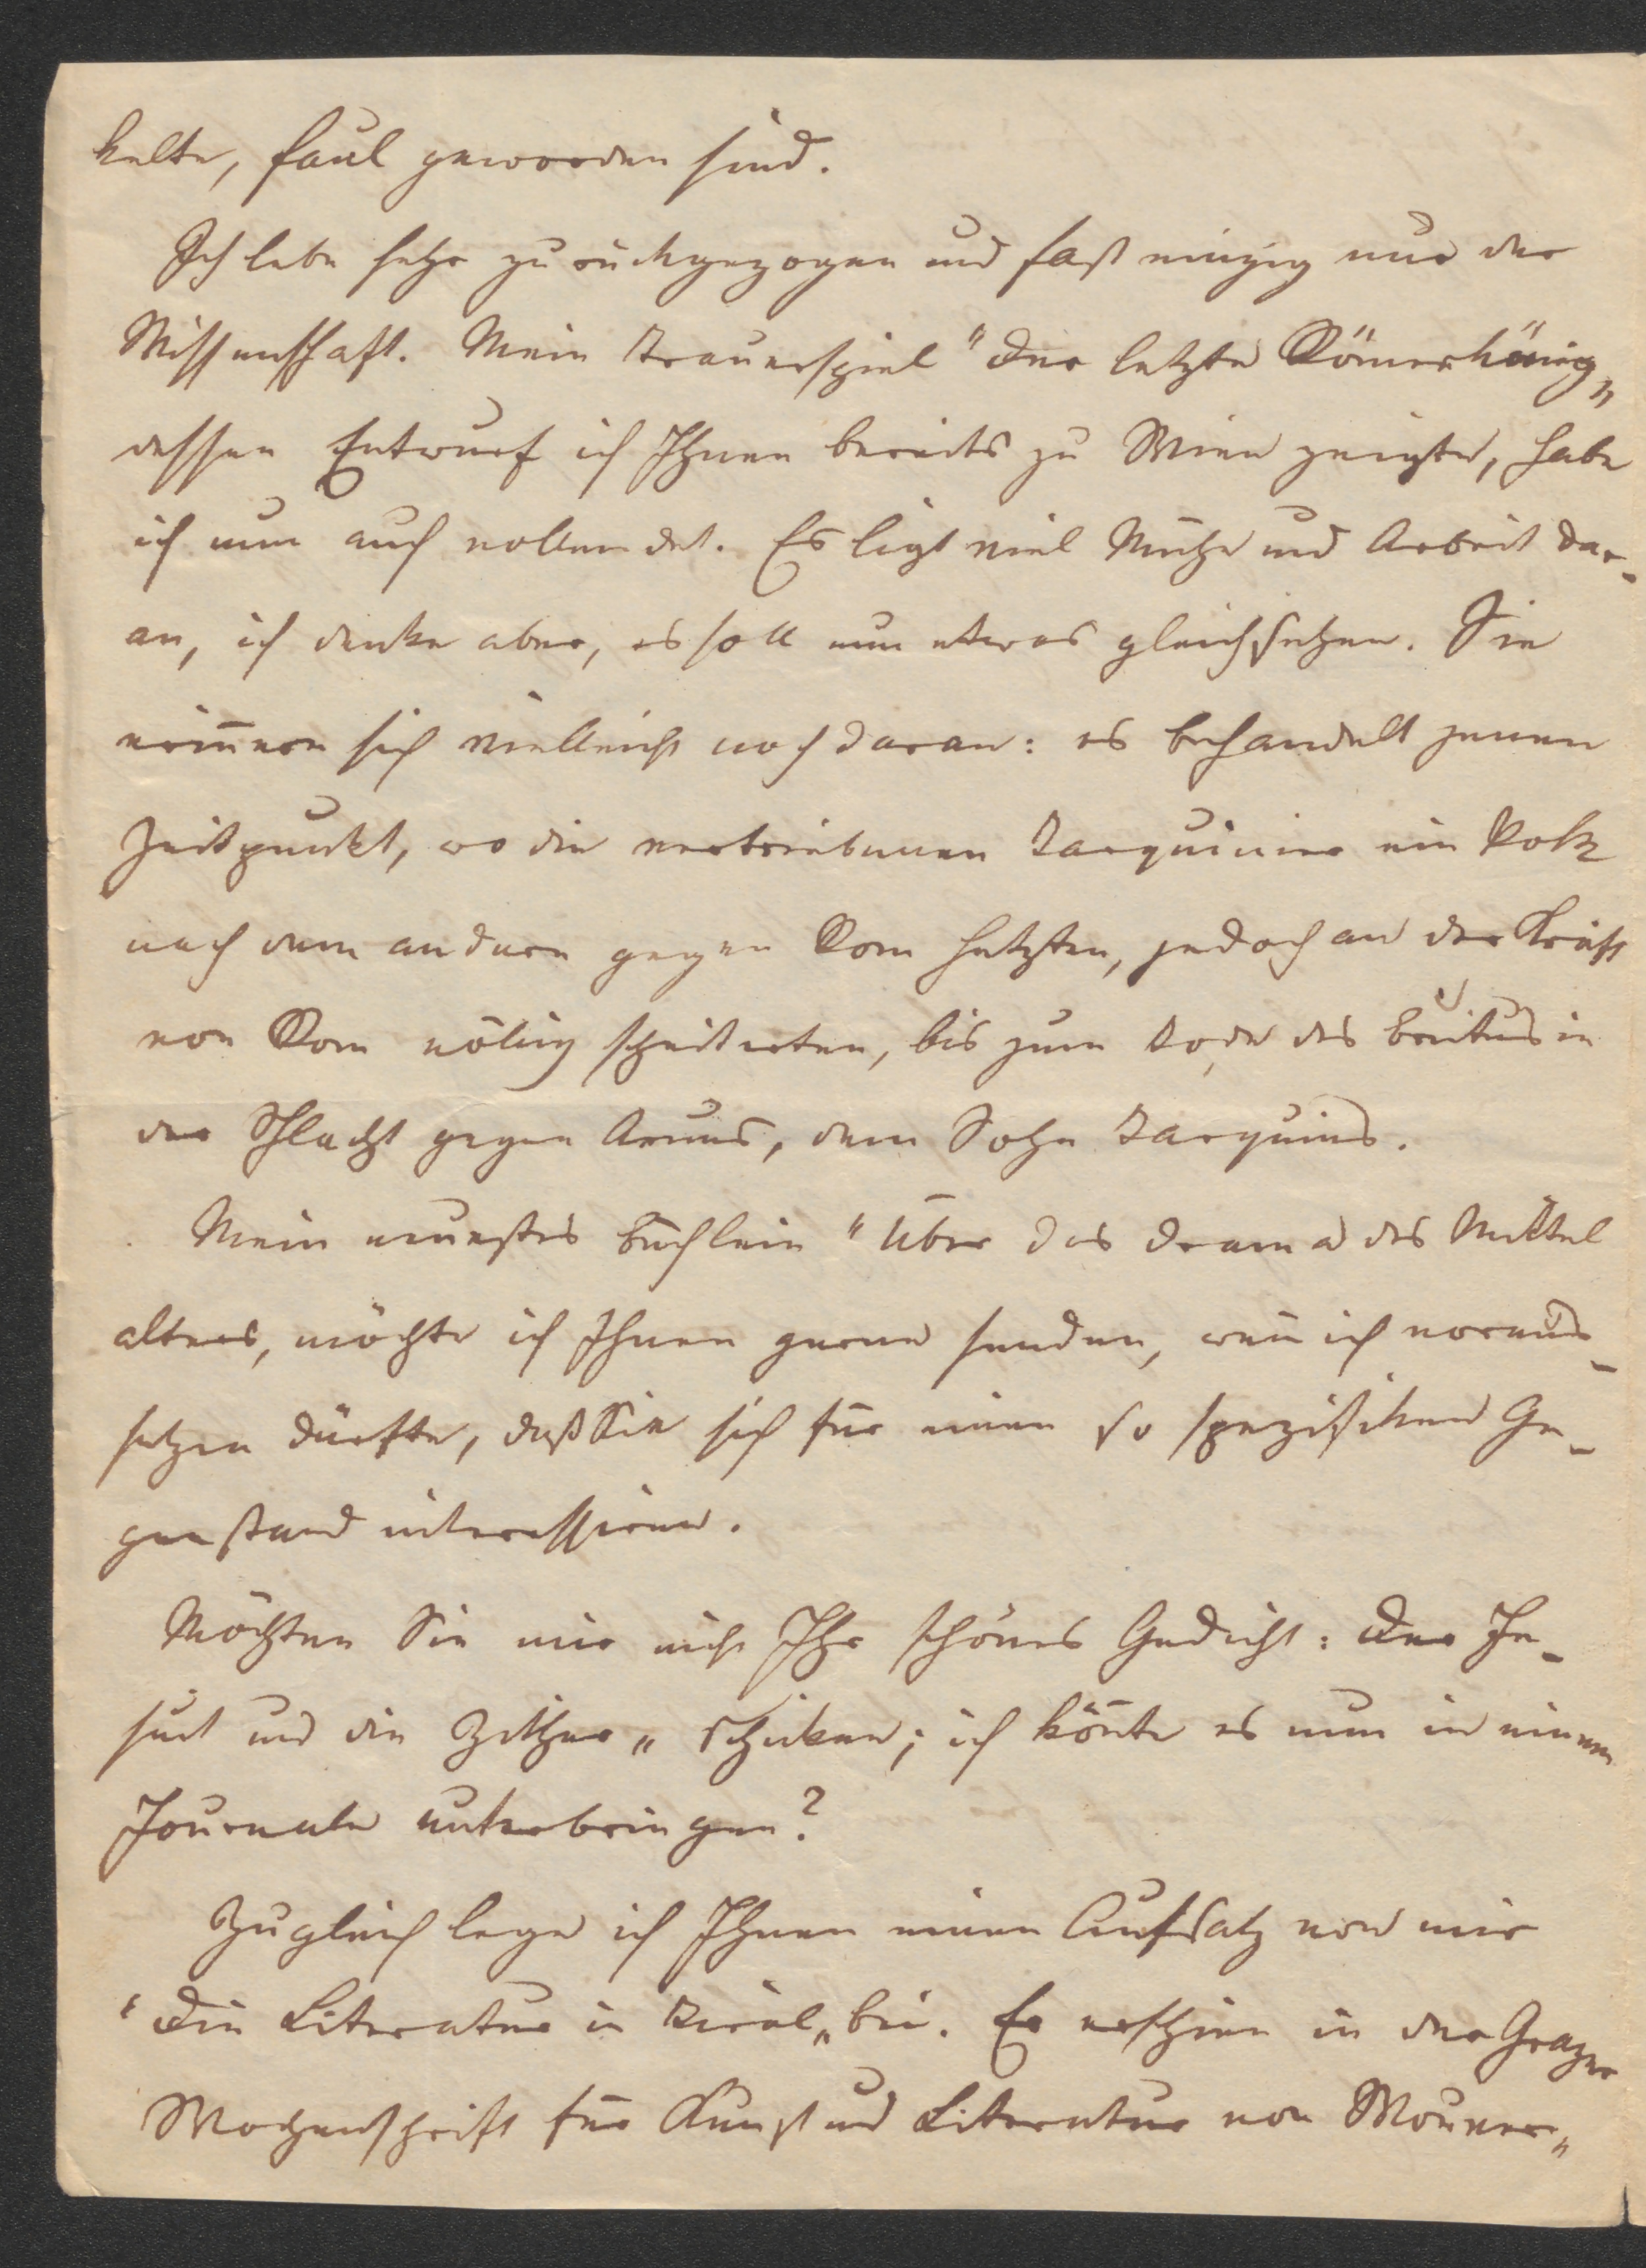 kelte, faul geworden sind.
Ich lebe sehr zurückgezogen und fast einzig nur der
Wissenschaft. Mein Trauerspiel "Der letzte Römerkönig„
dessen Entwurf ich Ihnen bereits zu Wien zeigte, habe
ich nun auch vollendet. Es ligt viel Mühe und Arbeit dar-
an, ich denke aber, es soll nun etwas gleichsehen. Sie
erin̅ern sich vielleicht noch daran: es behandelt jenen
Zeitpunkt, wo die vertriebenen Tarquinier ein Volk
nach dem andern gegen Rom hetzten, jedoch an der Kraft
von Rom völlig scheiterten, bis zum Tode des Brutus in
der Schlacht gegen Aruns, dem Sohn Tarquins.
Mein neuestes Büchlein "Über das Drama des Mittel
alters, möchte ich Ihnen gerne senden, wen̅ ich voraus-
setzen dürfte, daß Sie sich für einen so spezifiken Ge-
genstand interessiren.
Möchten Sie mir nicht Ihr schönes Gedicht: Der Je-
suit und die Zither„ schicken; ich kön̅te es nun in einem
Journale unterbringen?
Zugleich lege ich Ihnen einen Aufsatz von mir
"Die Literatur in Tirol„ bei. Er erschien in der Grazer
Wochenschrift für Kunst und Literatur von